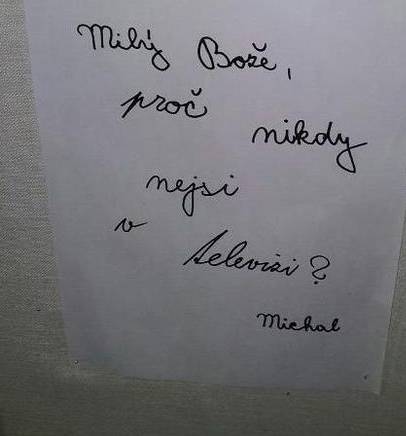 Milý Bože,
proč
nikdy
nejsi
v
televizi?
Michal